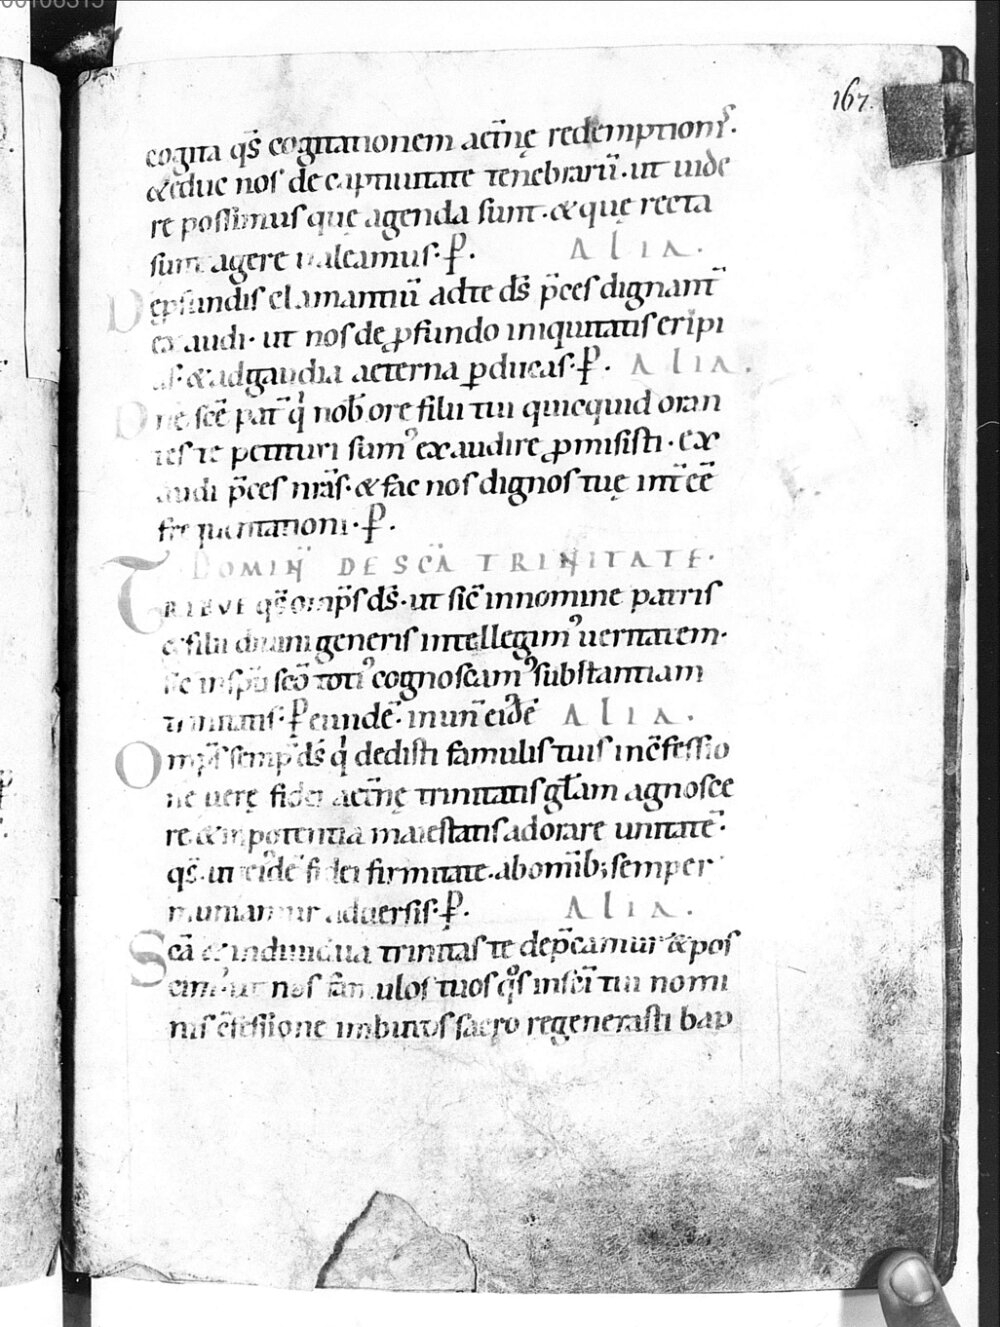 167.
cogita qs̄ cogitationem aet̄nę redemptionis.
& educ nos de captiuitate tenebrarū. ut uide
re possimus quę agenda sunt. & quę recta
sunt agere ualeamus. ꝑ. ALIA.
De profundis clamantiū ad te ds̄ p̄ces dignant̄
exaudi. ut nos de ꝓfundo iniquitatis eripi
as. & ad gaudia aeterna ꝑducas. ꝑ. ALIA.
Dn̄e sc̄e pat̄ qi nob̄ ore filii tui quicquid oran
tes te petituri sumꝰ exaudire ꝓmisisti. ex
audi p̄ces nr̄as. & fac nos dignos tuę int̄ cēē
frequentationi. ꝑ.
DOMIN̄ DE SCĀ TRINITATE.
TRIBUE qs̄ omps̄ ds̄. ut sic̄ in nomine patris
& filii diuini generis intellegimꝰ ueritatem.
sic in spū scō totiꝰ cognoscamꝰ substantiam
trinitatis. ꝑ eundē. in un̄ eidē ALIA.
Omps̄ semp̄ ds̄ qi dedisti famulis tuis in c̄fessio
ne uerę fidei aet̄nę trinitatis gl̄am agnosce
re. & in potentia maiestatis adorare unitatē.
qs̄. ut eidē fidei firmitate. ab omīb; semper
muniamur aduersis. ꝑ. ALIA.
Scā & indiuidua trinitas te dep̄camur & pos
cimꝰ ut nos famulos tuos qos in sc̄i tui nomi
nis c̄fessione imbutos sacro regenerasti bap